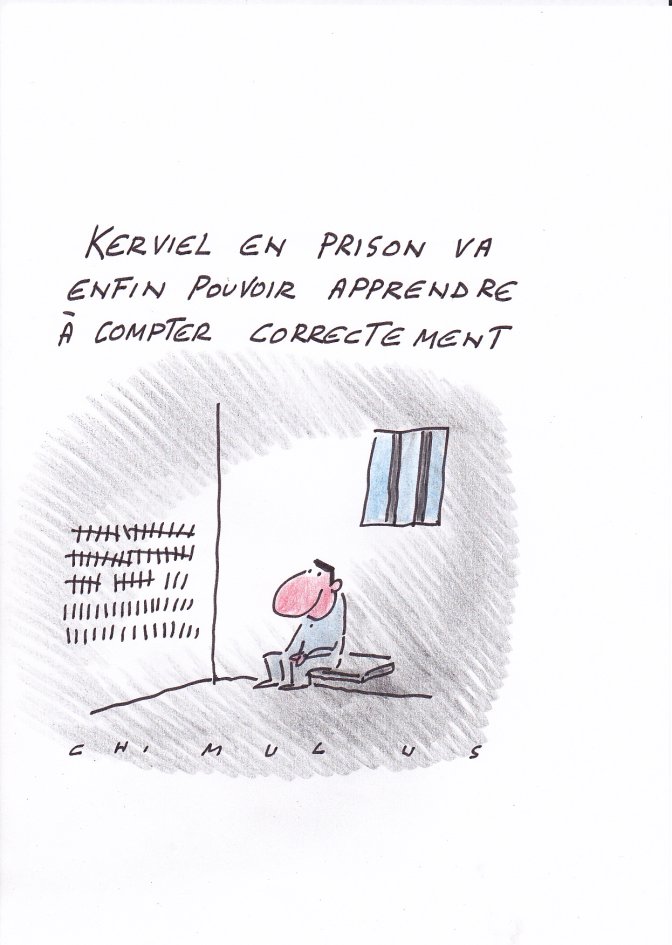 KERVIEL EN PRISON VA
ENFIN POUVOIR APPRENDRE
À COMPTER CORRECTEMENT
CHIMULUS